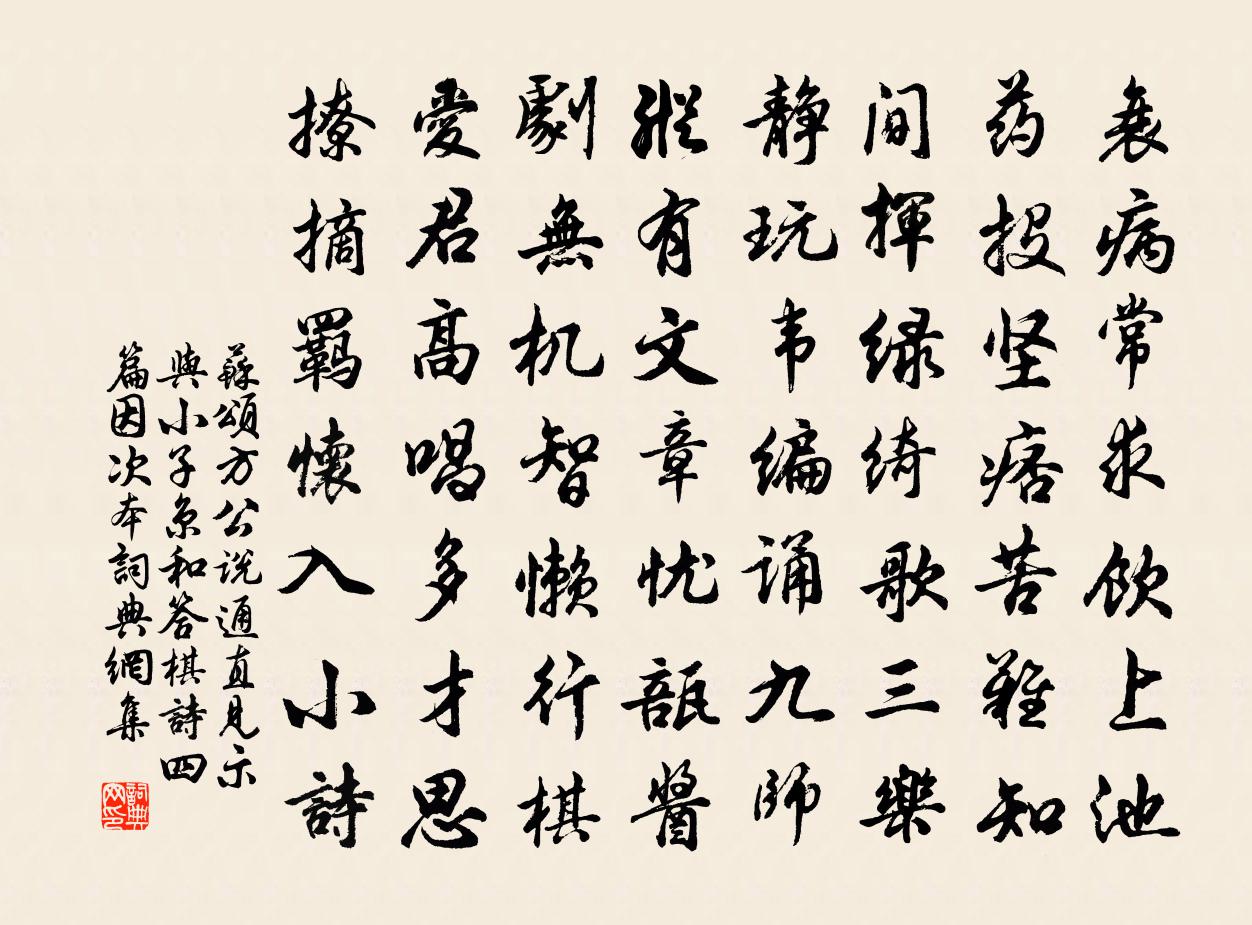 衰病常求饮上池
药投坚痞苦難知
间揮绿绮歌三樂
静玩韦编诵九師
縱有文章忧瓿醬
劇無机智懒行棋
愛君高唱多才思
撩摘羁懷入小詩
蘇頌方公说通直見示
與小子京和答棋詩四
篇因次本詞典網集
詞典网印